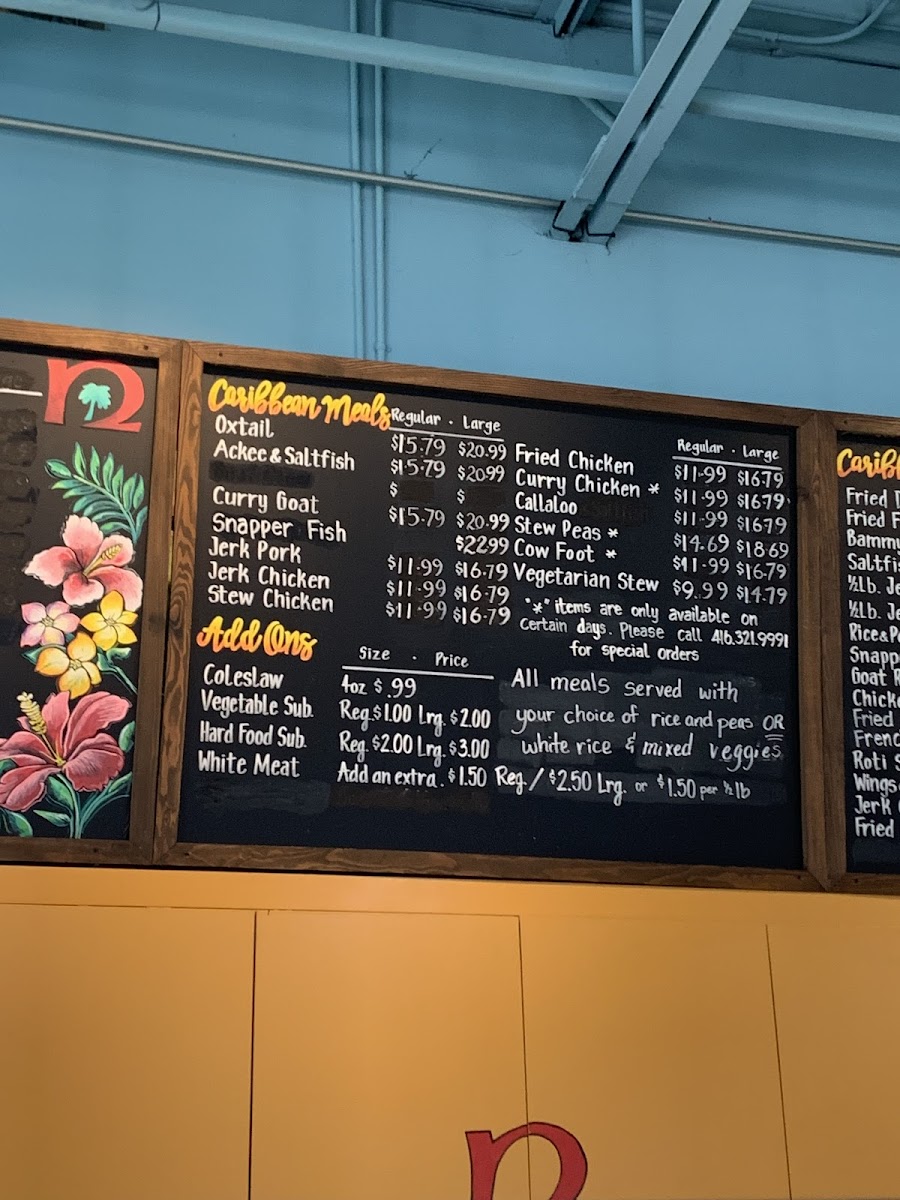 Caribbean Meals Regular · Large
Oxtail $15.79 $20.99
Ackee & Saltfish $15.79 $20.99
$ $
Curry Goat $15.79 $20.99
Snapper Fish $22.99
Jerk Pork $11.99 $16.79
Jerk Chicken $11.99 $16.79
Stew Chicken $11.99 $16.79
Regular · Large
Fried Chicken $11.99 $16.79
Curry Chicken * $11.99 $16.79
Callaloo $11.99 $16.79
Stew Peas * $14.69 $18.69
Cow Foot * $11.99 $16.79
Vegetarian Stew $9.99 $14.79
"*" items are only available on
certain days. Please call 416.321.9991
for special orders
Add Ons
Size · Price
Coleslaw 4oz $.99
Vegetable Sub. Reg. $1.00 Lrg. $2.00
Hard Food Sub. Reg. $2.00 Lrg. $3.00
White Meat Add an extra. $1.50 Reg. / $2.50 Lrg. or $1.50 per ½ lb
All meals served with
your choice of rice and peas OR
white rice & mixed veggies
Carib
Fried
Fried F
Bammy
Saltfis
½Lb. Je
½Lb. Je
Rice & Pe
Snapp
Goat R
Chick
Fried
Frenc
Roti S
Wings
Jerk
Fried